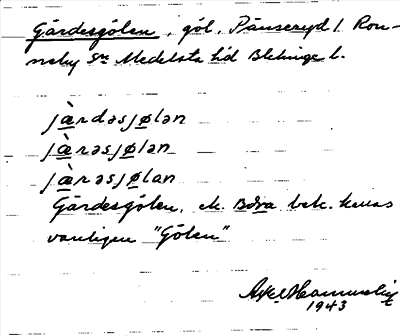 Gärdesgölen, göl, Pänseryd / Ron-
neby Sn Medelsta hd Blekinge l.
jàrdəsjølən
jàrəsjølən
jàrəsjølan
Gärdesgölen, ek. Böra bek. kallas
vanligen "Gölen"
1943